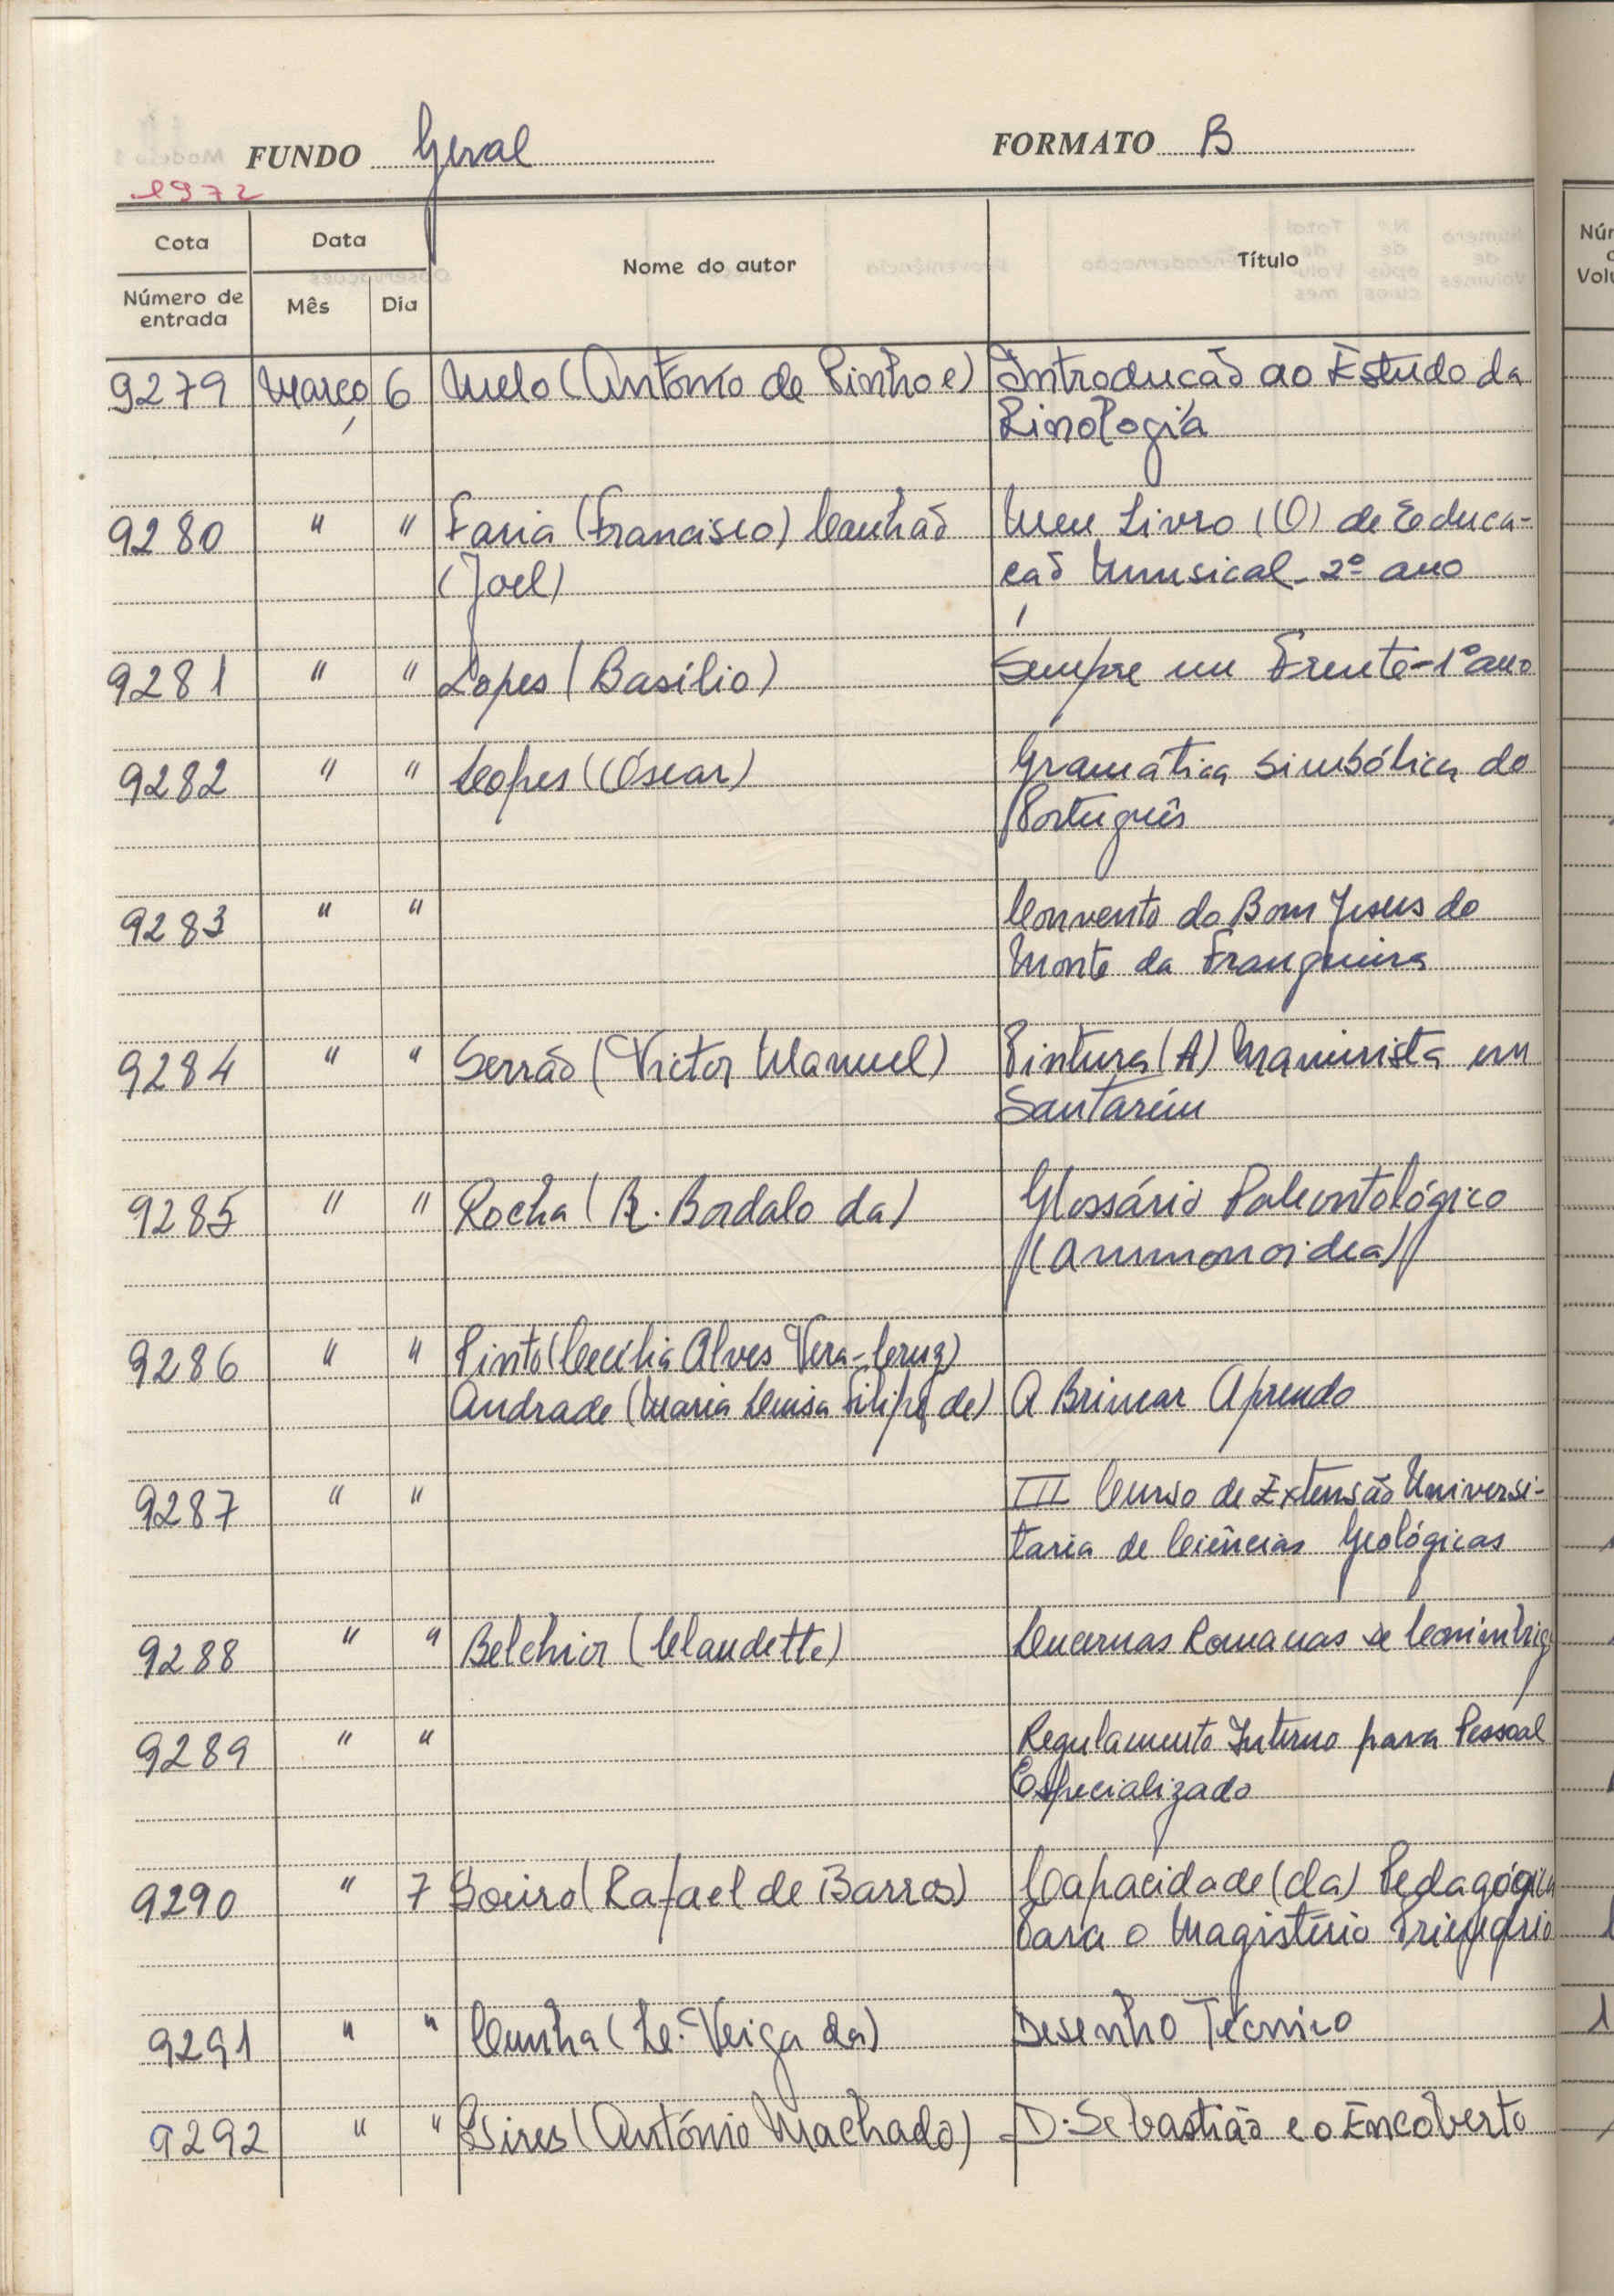 FUNDO Geral FORMATO B
1972
Cota Data Nome do autor Título
Número de entrada Mês Dia
9279 Março 6 Melo (António de Pinho e) Introducão ao Estudo da
Rinologia
9280 " " Faria (Francisco) Canhão Meu Livro (O) de Educa-
(Joel) ção Musical - 2º ano
9281 " " Lopes (Basílio) Sempre em Frente - 1º ano
9282 " " Lopes (Óscar) Gramática Simbólica do
Português
9283 " " Convento do Bom Jesus do
Monte da Franqueira
9284 " " Serrão (Victor Manuel) Pintura (A) Maneirista em
Santarém
9285 " " Rocha (R. Bordalo da) Glossário Paleontológico
(Ammonoidea)
9286 " " Pinto (Cecília Alves Vera-Cruz)
Andrade (Maria Luisa Filipe de) A Brincar Aprendo
9287 " " III Curso de Extensão Universi-
taria de Ciências Geológicas
9288 " " Belchior (Claudette) Lucernas Romanas de
9289 " " Regulamento Interno para Pessoal
Especializado
9290 " 7 (Rafael de Barros) Capacidade (da) Pedagógica
Para o Magistério Primário
9291 " " Cunha (L. Veiga da) Desenho Técnico 1
9292 " " Pires (António Machado) D. Sebastião e o Encoberto